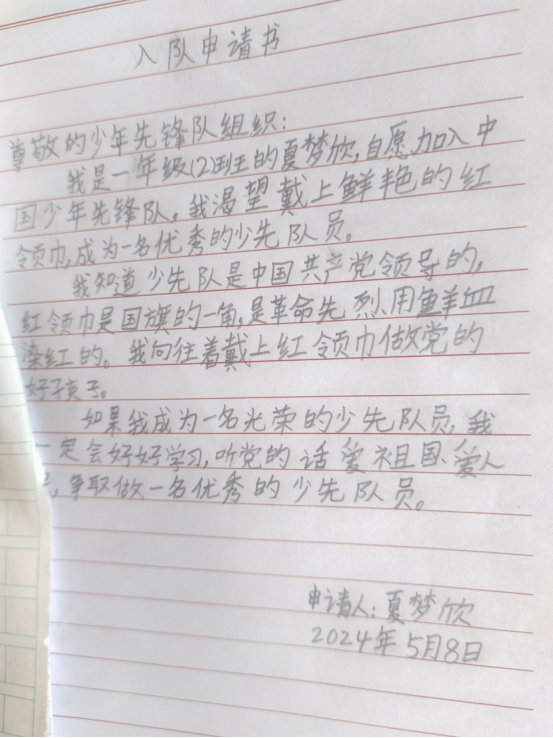 入队申请书
尊敬的少年先锋队组织:
我是一年级(2)班的夏梦欣,自愿加入中
国少年先锋队。我渴望戴上鲜艳的红
领巾,成为一名优秀的少先队员。
我知道少先队是中国共产党领导的,
红领巾是国旗的一角,是革命先烈用鲜血
染红的。我向往着戴上红领巾做党的
好孩子。
如果我成为一名光荣的少先队员,我
一定会好好学习,听党的话爱祖国、爱人
,争取做一名优秀的少先队员。
申请人:夏梦欣
2024年5月8日